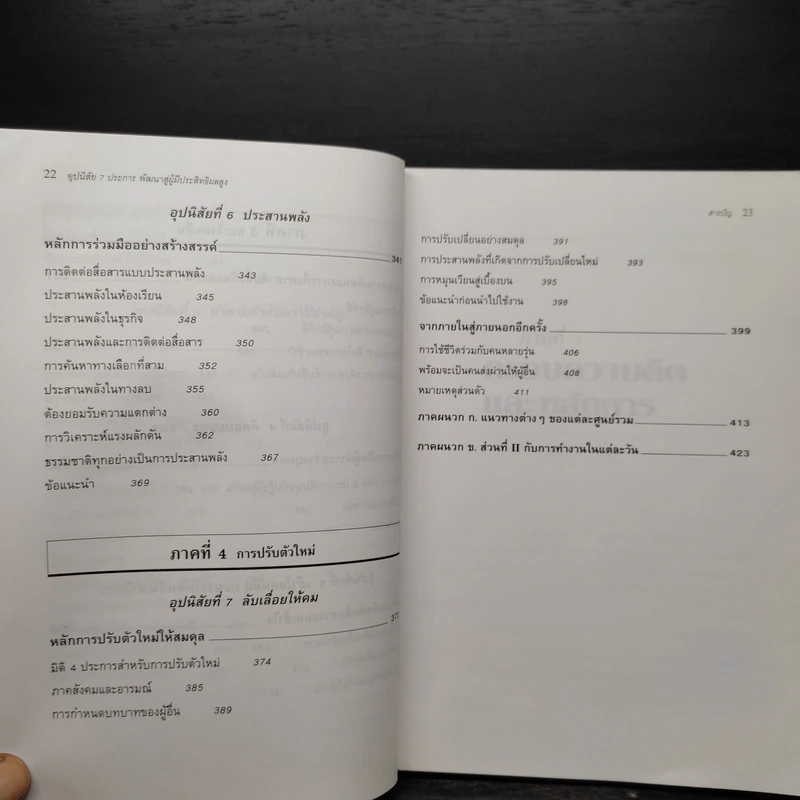 22 อุปนิสัย 7 ประการ พัฒนาสู่ผู้มีประสิทธิผลสูง
อุปนิสัยที่ 6 ประสานพลัง
หลักการร่วมมืออย่างสร้างสรรค์ 341
การติดต่อสื่อสารแบบประสานพลัง 343
ประสานพลังในห้องเรียน 345
ประสานพลังในธุรกิจ 348
ประสานพลังและการติดต่อสื่อสาร 350
การค้นหาทางเลือกที่สาม 352
ประสานพลังในทางลบ 355
ต้องยอมรับความแตกต่าง 360
การวิเคราะห์แรงผลักดัน 362
ธรรมชาติทุกอย่างเป็นการประสานพลัง 367
ข้อแนะนำ 369
ภาคที่ 4 การปรับตัวใหม่
อุปนิสัยที่ 7 ลับเลื่อยให้คม
หลักการปรับตัวใหม่ให้สมดุล
มิติ 4 ประการสำหรับการปรับตัวใหม่ 374
ภาคสังคมและอารมณ์ 385
การกำหนดบทบาทของผู้อื่น 389
สารบัญ 23
การปรับเปลี่ยนอย่างสมดุล 391
การประสานพลังที่เกิดจากการปรับเปลี่ยนใหม่ 393
การหมุนเวียนสู่เบื้องบน 395
ข้อแนะนำก่อนนำไปใช้งาน 398
จากภายในสู่ภายนอกอีกครั้ง 399
การใช้ชีวิตร่วมกับคนหลายรุ่น 406
พร้อมจะเป็นคนส่งผ่านให้ผู้อื่น 408
หมายเหตุส่วนตัว 411
ภาคผนวก ก. แนวทางต่างๆ ของแต่ละศูนย์รวม 413
ภาคผนวก ข. ส่วนที่ II กับการทำงานในแต่ละวัน 423